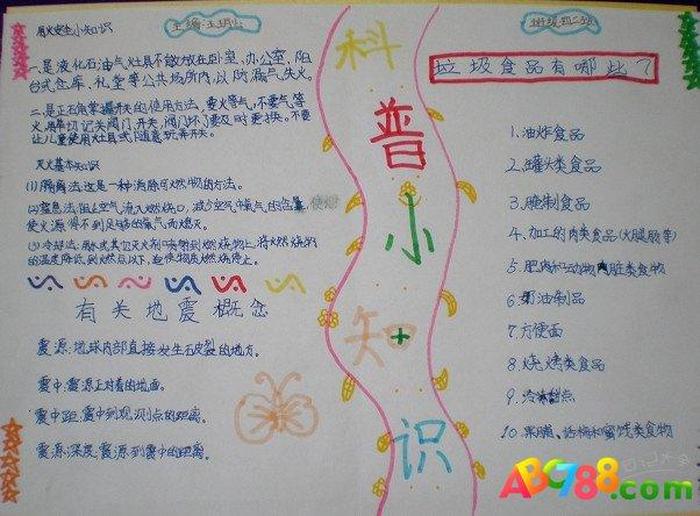 主编:王玥心
班级:四二班
用火安全小知识
一、是液化石油气灶具不能放在卧室,办公室,阳
台式仓库、礼堂等公共场所内,以防漏气,失火。
二、是正确掌握开关的使用方法,要火等气,不要气等
火,用毕切记关阀门,开关,阀门坏了要及时更换。不要
让儿童使用灶具或随意玩弄开关。
灭火基本知识
(1)隔离法:这是一种消除可燃物的方法。
(2)窒息法:阻止空气流入燃烧口,减少空气中氧气的含量,使
火源得不到足够的氧气而熄灭。
(3)冷却法:用水或其它灭火剂喷射到燃烧物上,将燃烧物
的温度降低到燃点以下,迫使物质燃烧停止。
有关地震概念
震源:地球内部直接发生石皮裂的地方。
震中:震源上对着的地面。
震中距:震中到观测点的距离。
震源深度:震源到震中的距离。
科
普
小
知
识
垃圾食品有哪些?
1.油炸食品
2.罐头类食品
3.腌制食品
4.加工的肉类食品(火腿肠等)
5.肥肉和动物内脏类食物
6.奶油制品
7.方便面
8.烧烤类食品
9.冷冻甜点
10.果脯、话梅和蜜饯类食物
ABC788.com